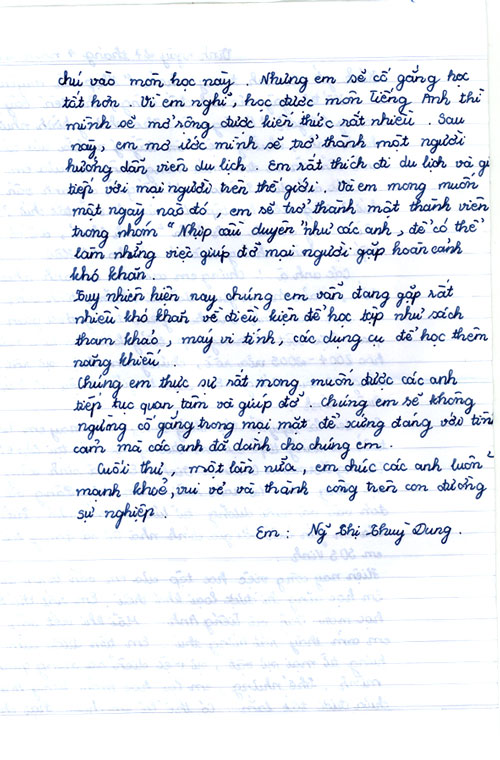 chú vào môn học này. Nhưng em sẽ cố gắng học
tốt hơn. Vì em nghĩ, học được môn Tiếng Anh thì
mình sẽ mở rộng được kiến thức rất nhiều. Sau
này, em mơ ước mình sẽ trở thành một người
hướng dẫn viên du lịch. Em rất thích đi du lịch và gi
tiếp với mọi người trên thế giới. Và em mong muốn
một ngày nào đó, em sẽ trở thành một thành viên
trong nhóm "Nhịp cầu duyên" như các anh, để có thể
làm những việc giúp đỡ mọi người gặp hoàn cảnh
khó khăn.
Tuy nhiên hiện nay chúng em vẫn đang gặp rất
nhiều khó khăn về điều kiện để học tập như sách
tham khảo, máy vi tính, các dụng cụ để học thêm
năng khiếu.
Chúng em thực sự rất mong muốn được các anh
tiếp tục quan tâm và giúp đỡ. Chúng em sẽ không
ngừng cố gắng trong mọi mặt để xứng đáng với tìn
cảm mà các anh đã dành cho chúng em.
Cuối thư, một lần nữa, em chúc các anh luôn
mạnh khoẻ, vui vẻ và thành công trên con đường
sự nghiệp.
Em: Ng Thị Thuỳ Dung.